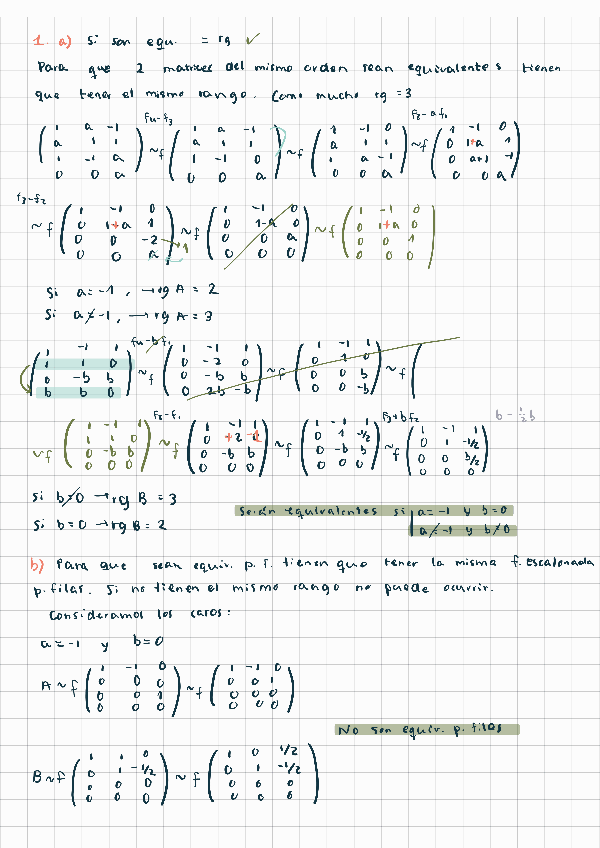 1. a) Si son equ. = rg ✓
Para que 2 matrices del mismo orden sean equivalentes tienen
que tener el mismo rango. Como mucho rg = 3
F4-F3 F2-aF1
( 1 a -1 ; a 1 1 ; 1 -1 a ; 0 0 a ) ~f ( 1 a -1 ; a 1 1 ; 1 -1 0 ; 0 0 a ) ~f ( 1 -1 0 ; a 1 1 ; 1 a -1 ; 0 0 a ) ~f ( 1 -1 0 ; 0 1+a 1 ; 0 a+1 -1 ; 0 0 a )
F3-F2
~f ( 1 -1 0 ; 0 1+a 1 ; 0 0 -2 ; 0 0 a ) → 1 ~f ( 1 -1 0 ; 0 1-a 0 ; 0 0 a ; 0 0 0 ) ~f ( 1 -1 0 ; 0 1+a 0 ; 0 0 1 ; 0 0 0 )
Si a=-1, → rg A = 2
Si a≠-1, → rg A = 3
F4-bF2
( 1 -1 1 ; 1 1 0 ; 0 -b b ; b b 0 ) ~f ( 1 -1 1 ; 0 -2 0 ; 0 -b b ; 0 2b -b ) ~f ( 1 -1 1 ; 0 1 0 ; 0 0 b ; 0 0 -b ) ~f (
F2-F1 F3+bF2 b-½b
~f ( 1 -1 1 ; 1 1 0 ; 0 -b b ; 0 0 0 ) ~f ( 1 -1 1 ; 0 +2 -1 ; 0 -b b ; 0 0 0 ) ~f ( 1 -1 1 ; 0 1 -1/2 ; 0 -b b ; 0 0 0 ) ~f ( 1 -1 1 ; 0 1 -1/2 ; 0 0 b/2 ; 0 0 0 )
Si b≠0 → rg B = 3
Si b=0 → rg B = 2
Serán equivalentes si | a=-1 y b=0
| a≠-1 y b≠0
b) Para que sean equiv. p. f. tienen que tener la misma f. Escalonada
p. filas. Si no tienen el mismo rango no puede ocurrir.
Consideramos los casos:
a=-1 y b=0
A ~f ( 1 -1 0 ; 0 0 0 ; 0 0 1 ; 0 0 0 ) ~f ( 1 -1 0 ; 0 0 1 ; 0 0 0 ; 0 0 0 )
No son equiv. p. filas
B ~f ( 1 1 0 ; 0 1 -1/2 ; 0 0 0 ; 0 0 0 ) ~f ( 1 0 1/2 ; 0 1 -1/2 ; 0 0 0 ; 0 0 0 )